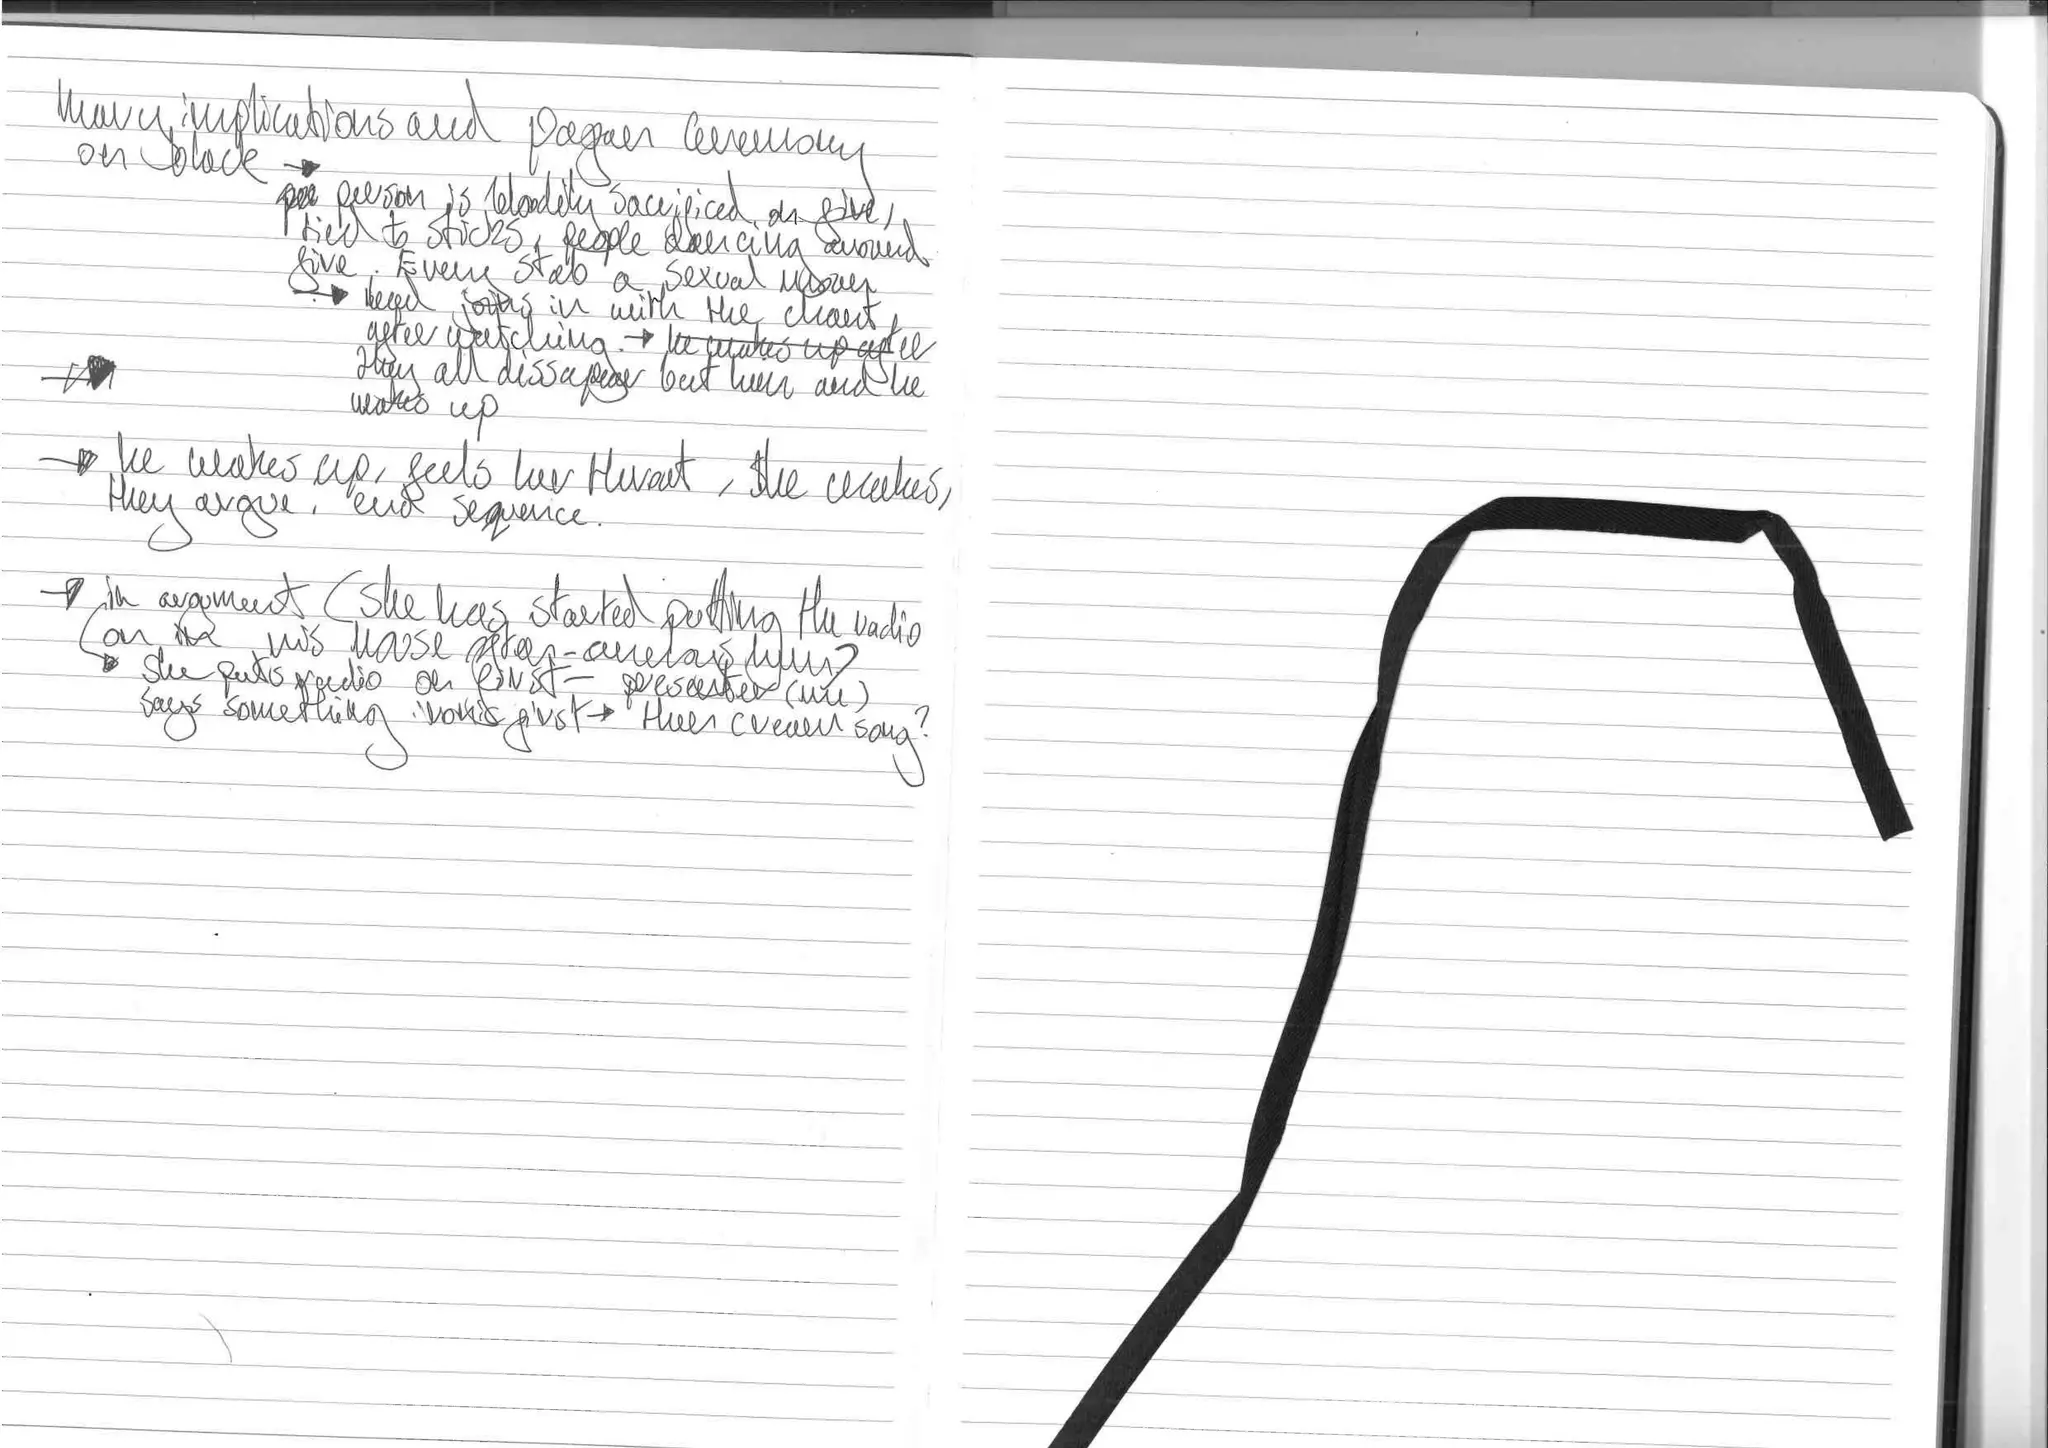 Many implications and pagan ceremony
on black →
person is bloodily sacrificed on fire,
tied to sticks, people dancing around
fire. Every stab a sexual moan
→ joins in with the chant
after watching. → he wakes up after
they all dissapear but him and he
wakes up
→ he wakes up, feels her throat, she wakes,
they argue. end sequence.
→ in argument (she has started putting the radio
on in his house
she puts radio on first – presenter (me)
says something ironic first → then cream song?